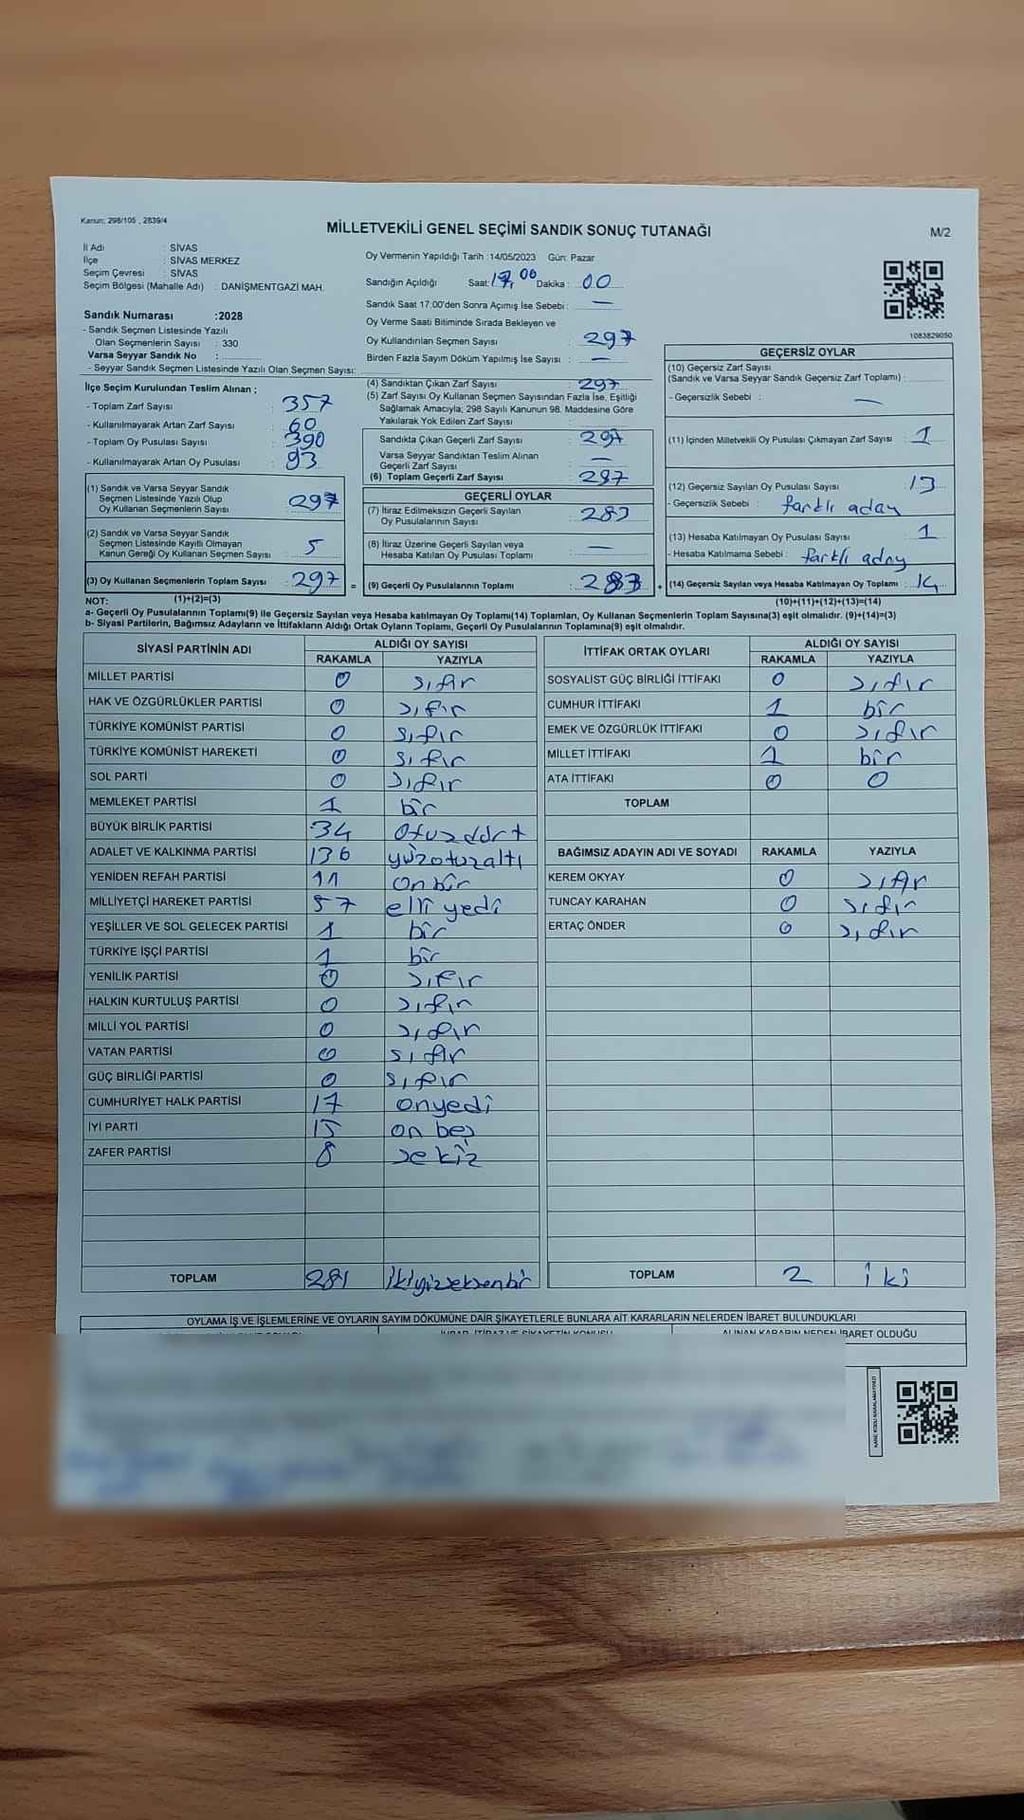 Kanun: 298/105 , 2839/4
MİLLETVEKİLİ GENEL SEÇİMİ SANDIK SONUÇ TUTANAĞI
M/2
İl Adı : SİVAS
İlçe : SİVAS MERKEZ
Seçim Çevresi : SİVAS
Seçim Bölgesi (Mahalle Adı) : DANİŞMENTGAZİ MAH.
Sandık Numarası :2028
- Sandık Seçmen Listesinde Yazılı
Olan Seçmenlerin Sayısı : 330
Varsa Seyyar Sandık No :
- Seyyar Sandık Seçmen Listesinde Yazılı Olan Seçmen Sayısı:
Oy Vermenin Yapıldığı Tarih :14/05/2023 Gün: Pazar
Sandığın Açıldığı Saat: 17,00 Dakika : 00
Sandık Saat 17:00'den Sonra Açımış İse Sebebi : —
Oy Verme Saati Bitiminde Sırada Bekleyen ve
Oy Kullandırılan Seçmen Sayısı : 297
Birden Fazla Sayım Döküm Yapılmış İse Sayısı : —
1083829050
İlçe Seçim Kurulundan Teslim Alınan ;
- Toplam Zarf Sayısı : 357
- Kullanılmayarak Artan Zarf Sayısı : 60
- Toplam Oy Pusulası Sayısı : 390
- Kullanılmayarak Artan Oy Pusulası : 93
(1) Sandık ve Varsa Seyyar Sandık
Seçmen Listesinde Yazılı Olup
Oy Kullanan Seçmenlerin Sayısı : 297
(2) Sandık ve Varsa Seyyar Sandık
Seçmen Listesinde Kayıtlı Olmayan
Kanun Gereği Oy Kullanan Seçmen Sayısı : 5
(3) Oy Kullanan Seçmenlerin Toplam Sayısı : 297 =
(1)+(2)=(3)
(4) Sandıktan Çıkan Zarf Sayısı : 297
(5) Zarf Sayısı Oy Kullanan Seçmen Sayısından Fazla İse, Eşitliği
Sağlamak Amacıyla; 298 Sayılı Kanunun 98. Maddesine Göre
Yakılarak Yok Edilen Zarf Sayısı :
Sandıkta Çıkan Geçerli Zarf Sayısı : 297
Varsa Seyyar Sandıktan Teslim Alınan
Geçerli Zarf Sayısı : —
(6) Toplam Geçerli Zarf Sayısı : 297
GEÇERLİ OYLAR
(7) İtiraz Edilmeksizin Geçerli Sayılan
Oy Pusulalarının Sayısı : 283
(8) İtiraz Üzerine Geçerli Sayılan veya
Hesaba Katılan Oy Pusulası Toplamı : —
(9) Geçerli Oy Pusulalarının Toplamı : 283 +
GEÇERSİZ OYLAR
(10) Geçersiz Zarf Sayısı
(Sandık ve Varsa Seyyar Sandık Geçersiz Zarf Toplamı) :
- Geçersizlik Sebebi : —
(11) İçinden Milletvekili Oy Pusulası Çıkmayan Zarf Sayısı : 1
(12) Geçersiz Sayılan Oy Pusulası Sayısı : 13
- Geçersizlik Sebebi : farklı aday
(13) Hesaba Katılmayan Oy Pusulası Sayısı : 1
- Hesaba Katılmama Sebebi : farklı aday
(14) Geçersiz Sayılan veya Hesaba Katılmayan Oy Toplamı : 14
(10)+(11)+(12)+(13)=(14)
NOT:
a- Geçerli Oy Pusulalarının Toplamı(9) ile Geçersiz Sayılan veya Hesaba katılmayan Oy Toplamı(14) Toplamları, Oy Kullanan Seçmenlerin Toplam Sayısına(3) eşit olmalıdır. (9)+(14)=(3)
b- Siyasi Partilerin, Bağımsız Adayların ve İttifakların Aldığı Ortak Oyların Toplamı, Geçerli Oy Pusulalarının Toplamına(9) eşit olmalıdır.
SİYASİ PARTİNİN ADI ALDIĞI OY SAYISI
RAKAMLA YAZIYLA
MİLLET PARTİSİ 0 sıfır
HAK VE ÖZGÜRLÜKLER PARTİSİ 0 sıfır
TÜRKİYE KOMÜNİST PARTİSİ 0 sıfır
TÜRKİYE KOMÜNİST HAREKETİ 0 sıfır
SOL PARTİ 0 sıfır
MEMLEKET PARTİSİ 1 bir
BÜYÜK BİRLİK PARTİSİ 34 otuzdört
ADALET VE KALKINMA PARTİSİ 136 yüzotuzaltı
YENİDEN REFAH PARTİSİ 11 on bir
MİLLİYETÇİ HAREKET PARTİSİ 57 elli yedi
YEŞİLLER VE SOL GELECEK PARTİSİ 1 bir
TÜRKİYE İŞÇİ PARTİSİ 1 bir
YENİLİK PARTİSİ 0 sıfır
HALKIN KURTULUŞ PARTİSİ 0 sıfır
MİLLİ YOL PARTİSİ 0 sıfır
VATAN PARTİSİ 0 sıfır
GÜÇ BİRLİĞİ PARTİSİ 0 sıfır
CUMHURİYET HALK PARTİSİ 17 onyedi
İYİ PARTİ 15 on beş
ZAFER PARTİSİ 8 sekiz
TOPLAM 281 ikiyüzseksenbir
İTTİFAK ORTAK OYLARI ALDIĞI OY SAYISI
RAKAMLA YAZIYLA
SOSYALİST GÜÇ BİRLİĞİ İTTİFAKI 0 sıfır
CUMHUR İTTİFAKI 1 bir
EMEK VE ÖZGÜRLÜK İTTİFAKI 0 sıfır
MİLLET İTTİFAKI 1 bir
ATA İTTİFAKI 0 0
TOPLAM
BAĞIMSIZ ADAYIN ADI VE SOYADI RAKAMLA YAZIYLA
KEREM OKYAY 0 sıfır
TUNCAY KARAHAN 0 sıfır
ERTAÇ ÖNDER 0 sıfır
TOPLAM 2 iki
OYLAMA İŞ VE İŞLEMLERİNE VE OYLARIN SAYIM DÖKÜMÜNE DAİR ŞİKAYETLERLE BUNLARA AİT KARARLARIN NELERDEN İBARET BULUNDUKLARI
ALINAN KARARIN NEDEN İBARET OLDUĞU